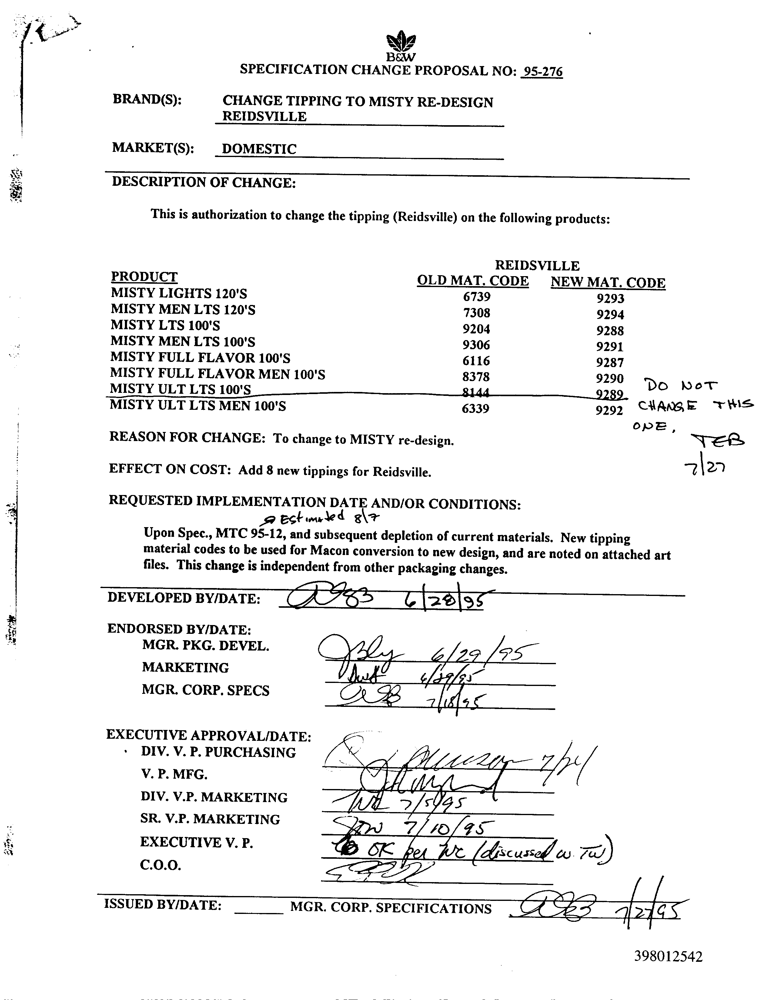 B&W
SPECIFICATION CHANGE PROPOSAL NO: 95-276
BRAND(S): CHANGE TIPPING TO MISTY RE-DESIGN
REIDSVILLE
MARKET(S): DOMESTIC
DESCRIPTION OF CHANGE:
This is authorization to change the tipping (Reidsville) on the following products:
REIDSVILLE
PRODUCT OLD MAT. CODE NEW MAT. CODE
MISTY LIGHTS 120'S 6739 9293
MISTY MEN LTS 120'S 7308 9294
MISTY LTS 100'S 9204 9288
MISTY MEN LTS 100'S 9306 9291
MISTY FULL FLAVOR 100'S 6116 9287
MISTY FULL FLAVOR MEN 100'S 8378 9290
MISTY ULT LTS 100'S 8144 9289 DO NOT
MISTY ULT LTS MEN 100'S 6339 9292 CHANGE THIS
ONE.
TEB
7/27
REASON FOR CHANGE: To change to MISTY re-design.
EFFECT ON COST: Add 8 new tippings for Reidsville.
REQUESTED IMPLEMENTATION DATE AND/OR CONDITIONS:
Estimated 8/7
Upon Spec., MTC 95-12, and subsequent depletion of current materials. New tipping
material codes to be used for Macon conversion to new design, and are noted on attached art
files. This change is independent from other packaging changes.
DEVELOPED BY/DATE: 6/28/95
ENDORSED BY/DATE:
MGR. PKG. DEVEL. 6/29/95
MARKETING 6/29/95
MGR. CORP. SPECS 7/18/95
EXECUTIVE APPROVAL/DATE:
DIV. V. P. PURCHASING
V. P. MFG.
DIV. V.P. MARKETING 7/5/95
SR. V.P. MARKETING 7/10/95
EXECUTIVE V. P. OK per (discussed w TW)
C.O.O.
ISSUED BY/DATE: MGR. CORP. SPECIFICATIONS 7/27/95
398012542